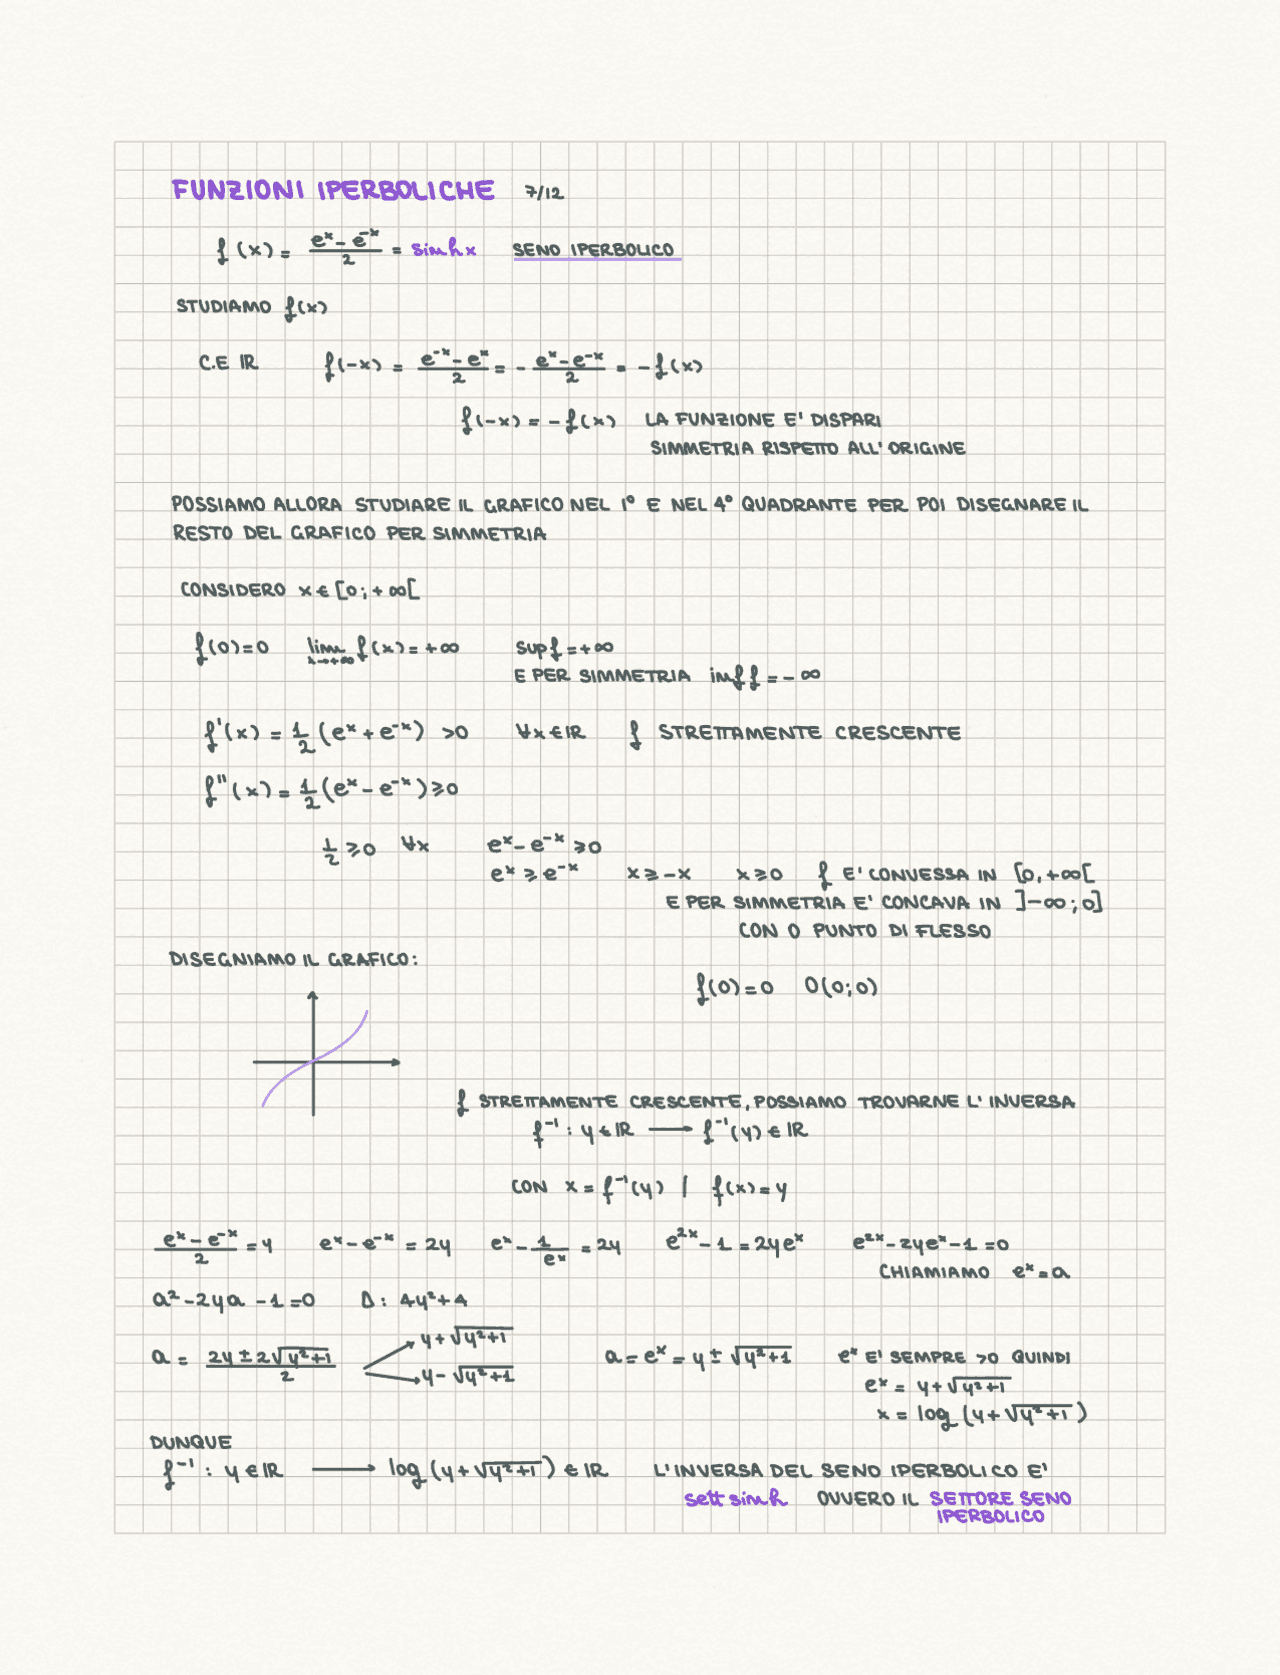 FUNZIONI IPERBOLICHE 7/12
f(x) = (eˣ - e⁻ˣ)/2 = sinh x SENO IPERBOLICO
STUDIAMO f(x)
C.E ℝ f(-x) = (e⁻ˣ - eˣ)/2 = - (eˣ - e⁻ˣ)/2 = - f(x)
f(-x) = - f(x) LA FUNZIONE E' DISPARI
SIMMETRIA RISPETTO ALL'ORIGINE
POSSIAMO ALLORA STUDIARE IL GRAFICO NEL 1° E NEL 4° QUADRANTE PER POI DISEGNARE IL
RESTO DEL GRAFICO PER SIMMETRIA
CONSIDERO x ∈ [0; +∞[
f(0) = 0 lim x→+∞ f(x) = +∞ sup f = +∞
E PER SIMMETRIA inf f = - ∞
f'(x) = 1/2 (eˣ + e⁻ˣ) > 0 ∀x ∈ ℝ f STRETTAMENTE CRESCENTE
f''(x) = 1/2 (eˣ - e⁻ˣ) ≥ 0
1/2 ≥ 0 ∀x eˣ - e⁻ˣ ≥ 0
eˣ ≥ e⁻ˣ x ≥ -x x ≥ 0 f E' CONVESSA IN [0, +∞[
E PER SIMMETRIA E' CONCAVA IN ]-∞; 0]
CON 0 PUNTO DI FLESSO
DISEGNIAMO IL GRAFICO:
f(0) = 0 O(0;0)
f STRETTAMENTE CRESCENTE, POSSIAMO TROVARNE L'INVERSA
f⁻¹ : y ∈ ℝ ⟶ f⁻¹(y) ∈ ℝ
CON x = f⁻¹(y) | f(x) = y
(eˣ - e⁻ˣ)/2 = y eˣ - e⁻ˣ = 2y eˣ - 1/eˣ = 2y e²ˣ - 1 = 2yeˣ e²ˣ - 2yeˣ - 1 = 0
CHIAMIAMO eˣ = a
a² - 2ya - 1 = 0 Δ: 4y² + 4
a = (2y ± 2√(y²+1))/2 y + √(y²+1) y - √(y²+1) a = eˣ = y ± √(y²+1) eˣ E' SEMPRE > 0 QUINDI
eˣ = y + √(y²+1)
x = log (y + √(y²+1))
DUNQUE
f⁻¹ : y ∈ ℝ ⟶ log (y + √(y²+1)) ∈ ℝ L'INVERSA DEL SENO IPERBOLICO E'
sett sinh OVVERO IL SETTORE SENO
IPERBOLICO